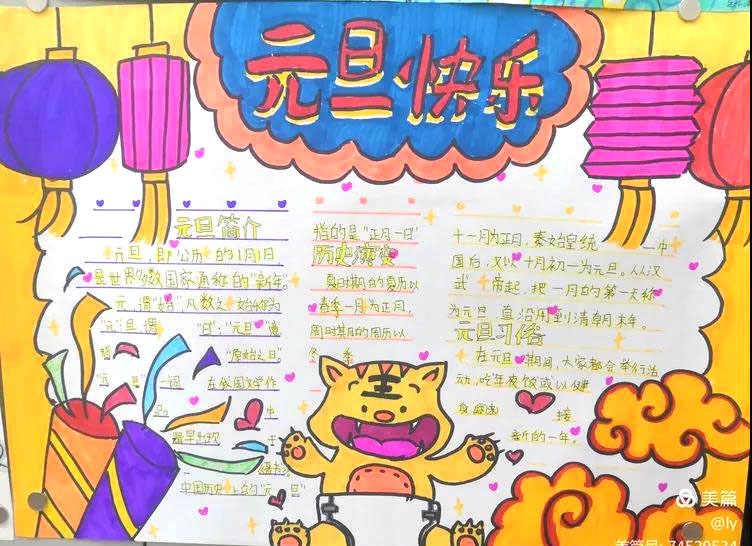 元旦快乐
元旦简介
元旦，即公历的1月1日，
是世界多数国家通称的“新年”。
元，谓“始”，凡数之始称为
“元”；旦，谓“日”；“元旦”意
指“原始之日”
“元旦”一词
在我国文学作
品中
最早出现于
《晋书》。
中国历史上的“元旦”
指的是“正月一日”
历史演变
夏时期的夏历以
春季一月为正月，
周时期的周历以
冬季
十一月为正月，秦始皇统一中
国后，又以十月初一为元旦。从汉
武帝起，把一月的第一天称
为元旦，直沿用到清朝末年。
元旦习俗
在元旦期间，大家都会举行活
动，吃年夜饭或以健
身
接
新的一年。
美篇
@ly
美篇号: 74529534